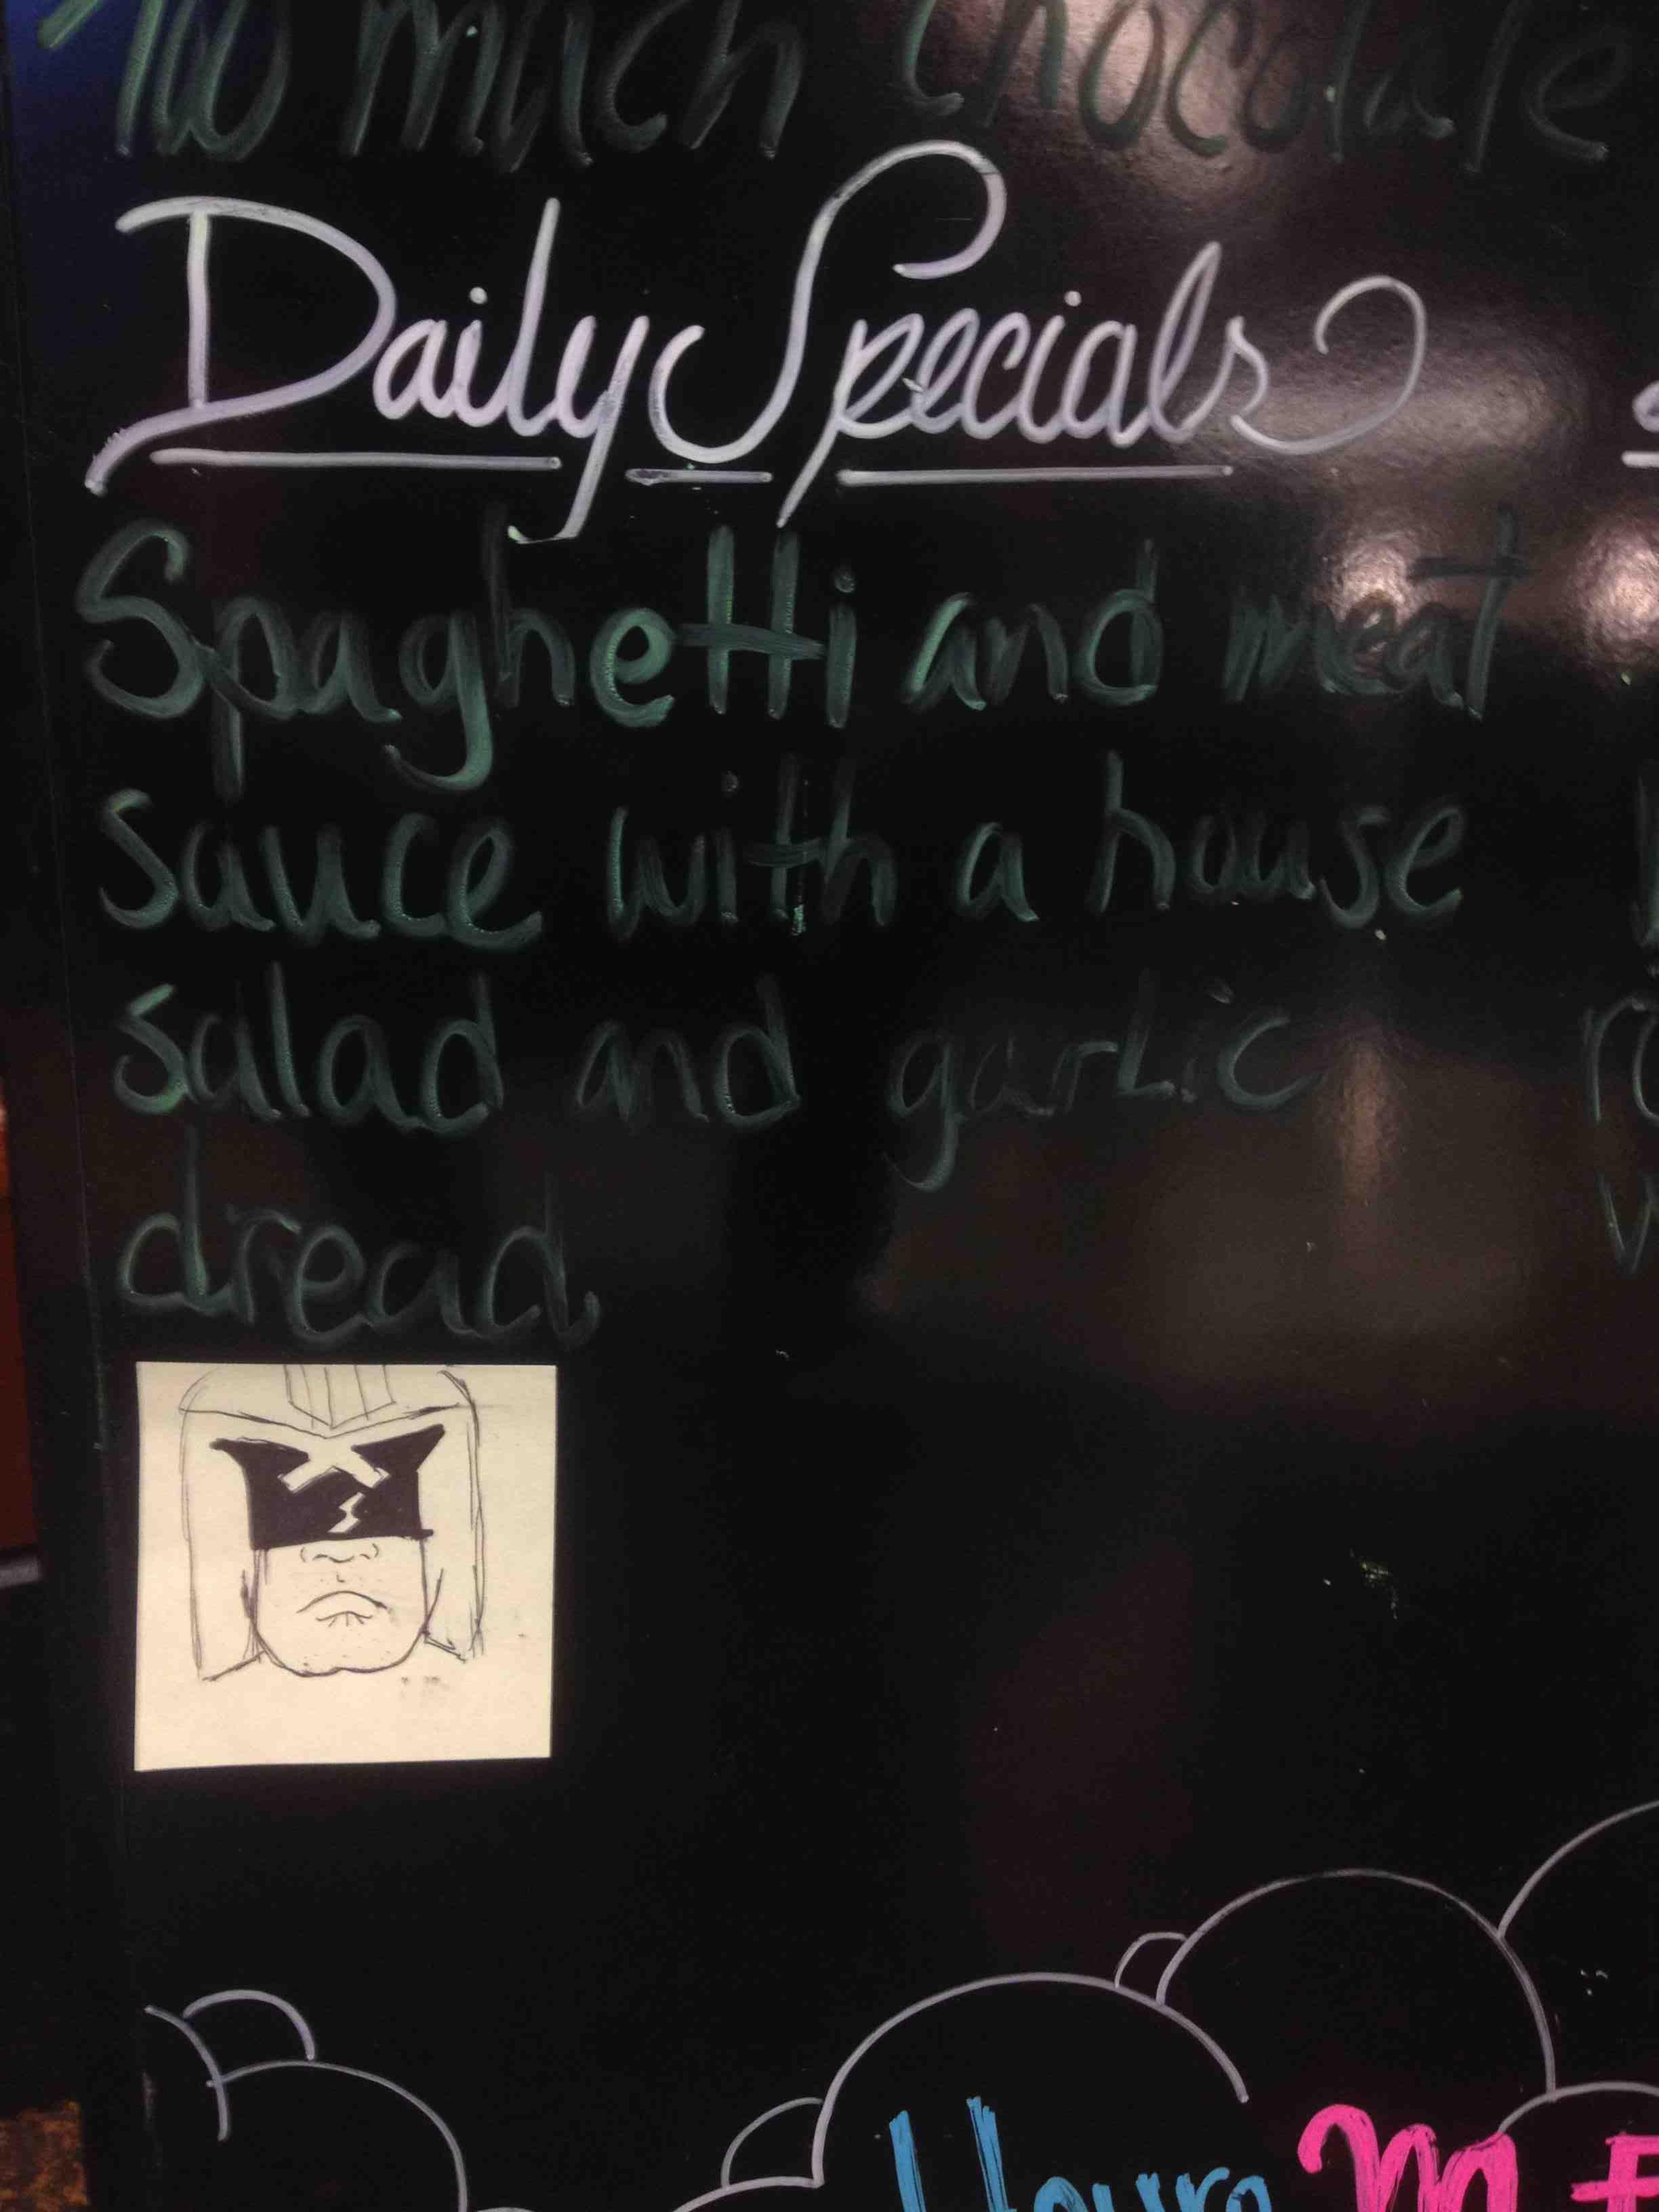 Too much Chocolate
Daily Specials
Spaghetti and meat
sauce with a house
salad and garlic
dread
Hours M-F